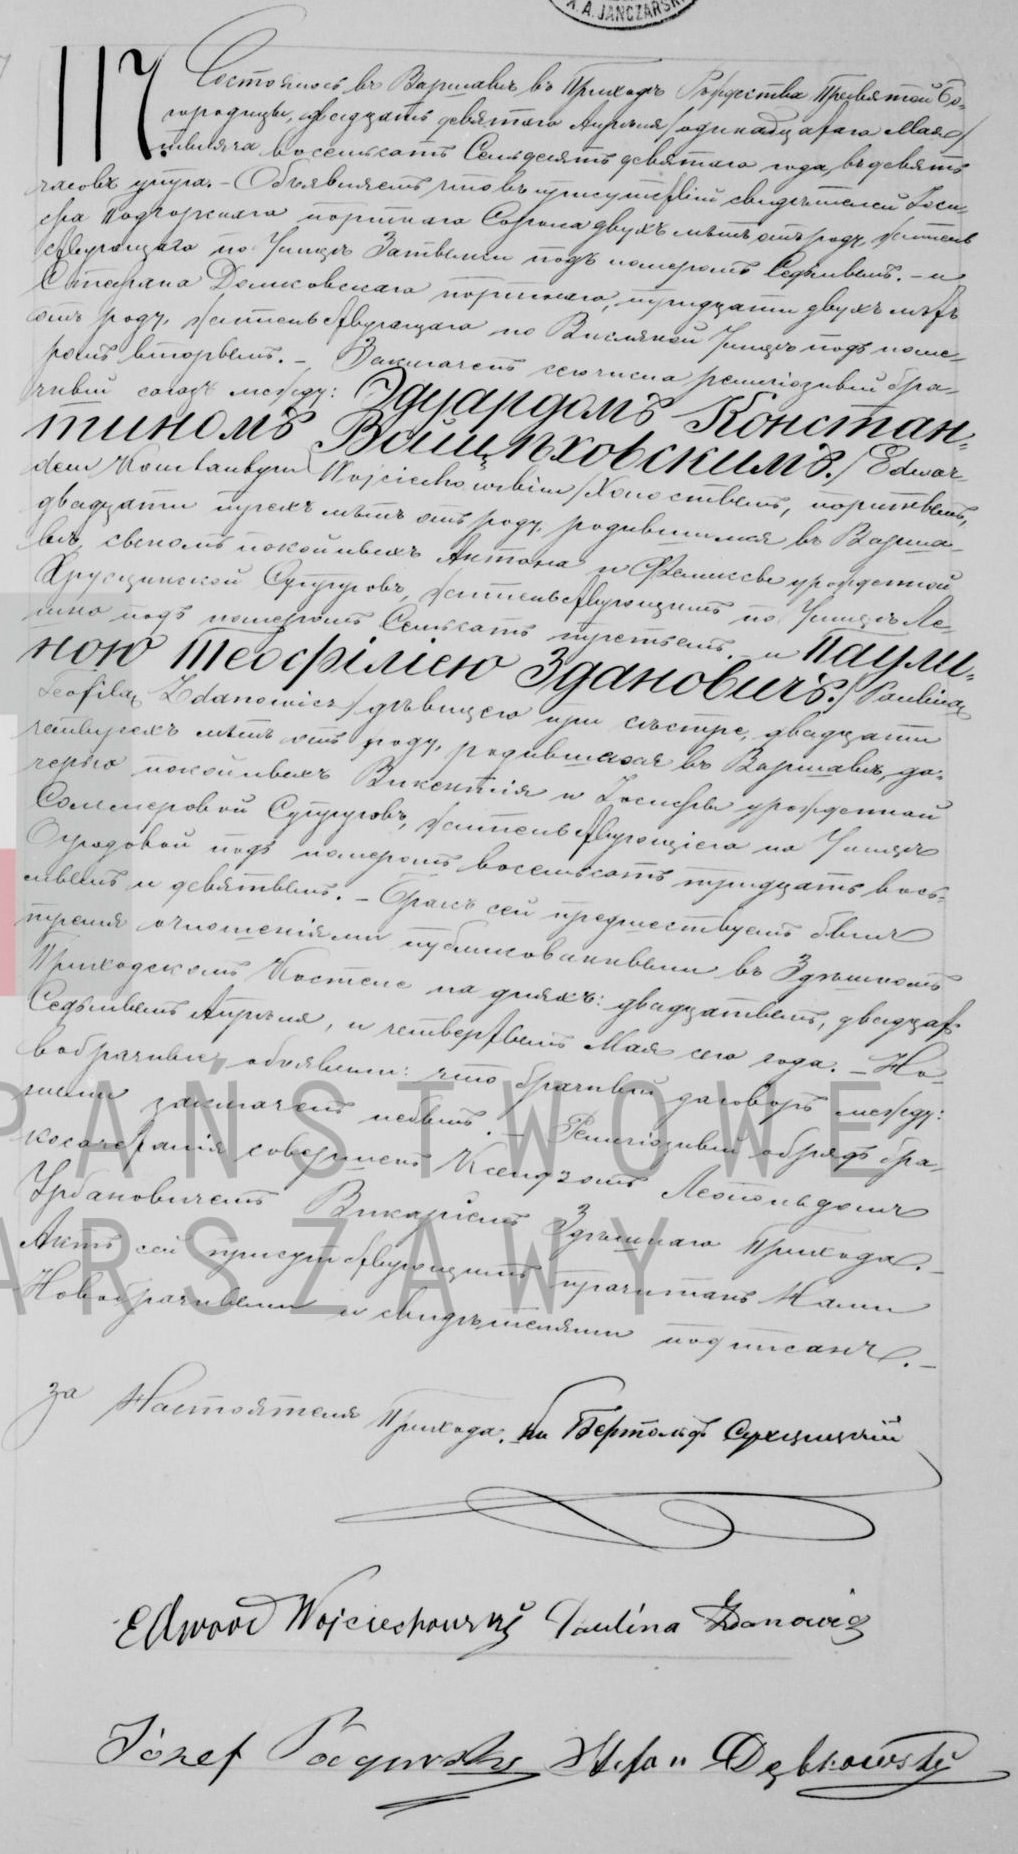 K. A. JANCZARSKI
117. Состоялось въ Варшавѣ въ Приходѣ Рождества Пресвятой Бо-
городицы, двадцать девятаго Апрѣля /одинадцатаго Мая/
тысяча восемьсотъ Семьдесятъ девятаго года, въ девять
часовъ утра. – Объявляемъ, что въ присутствіи свидѣтелей Іоси-
фа Подгорскаго портнаго Сорока двухъ лѣтъ отъ роду, житель
ствующаго по Улицѣ подъ номеромъ Седьмымъ. – и
Стефана Домковскаго портнаго, тридцати двухъ лѣтъ
отъ роду, жительствующаго по Улицѣ подъ номе-
ромъ вторымъ. – Заключенъ сего числа религіозный бра-
чный союзъ между: Эдуардомъ Констан-
тиномъ Войцѣховскимъ. /Edwar-
dem Konstantym Wojciechowskim/ Холостымъ, портнымъ,
двадцати трехъ лѣтъ отъ роду, родившимся въ Варша-
вѣ, сыномъ покойныхъ Антона и Феликсы урожденной
Хрусцинской Супруговъ, жительствующимъ по Улицѣ Ле-
шно подъ номеромъ Семьсотъ третьемъ. – и Паули-
ною Теофіліею Здановичъ. /Paulina
Teofila Zdanowicz/ дѣвицею при сестре, двадцати
четырехъ лѣтъ отъ роду, родившаяся въ Варшавѣ, до-
черью покойныхъ Викентія и Іосифы урожденной
Соммеровой Супруговъ, жительствующіею по Улицѣ
Огродовой подъ номеромъ восемьсотъ тридцать вось-
мымъ и девятымъ. – Бракъ сей предшествуемъ былъ
тремя оглошеніями публикованными въ Здѣшномъ
Приходскомъ Костелѣ на дняхъ: двадцатымъ, двадцать
Седьмымъ Апрѣля, и четвертымъ Мая сего года. – Но-
вобрачные объявили: что брачный договоръ между:
ними заключенъ небылъ. – Религіозный обрядъ бра-
косочетанія совершенъ Ксендзомъ Леопольдомъ
Урбановичемъ Викаріемъ Здѣшнаго Прихода. –
Актъ сей присутствующимъ прочитанъ Нами
Новобрачными и свидѣтелями подписанъ. –
за Настоятеля Прихода. Кс Бертольдъ
Edward Wojciechowski Paulina Zdanowicz
Józef Podgurski Stefan Dębkowski
PAŃSTWOWE
ARSZAWY